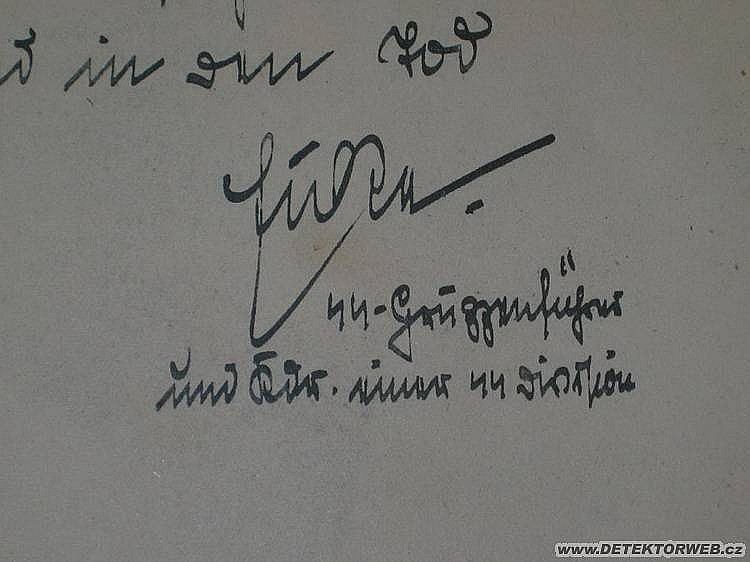 d in den Tod
Eicke.
SS-Gruppenführer
und Kdr. einer SS Division
www.DETEKTORWEB.cz